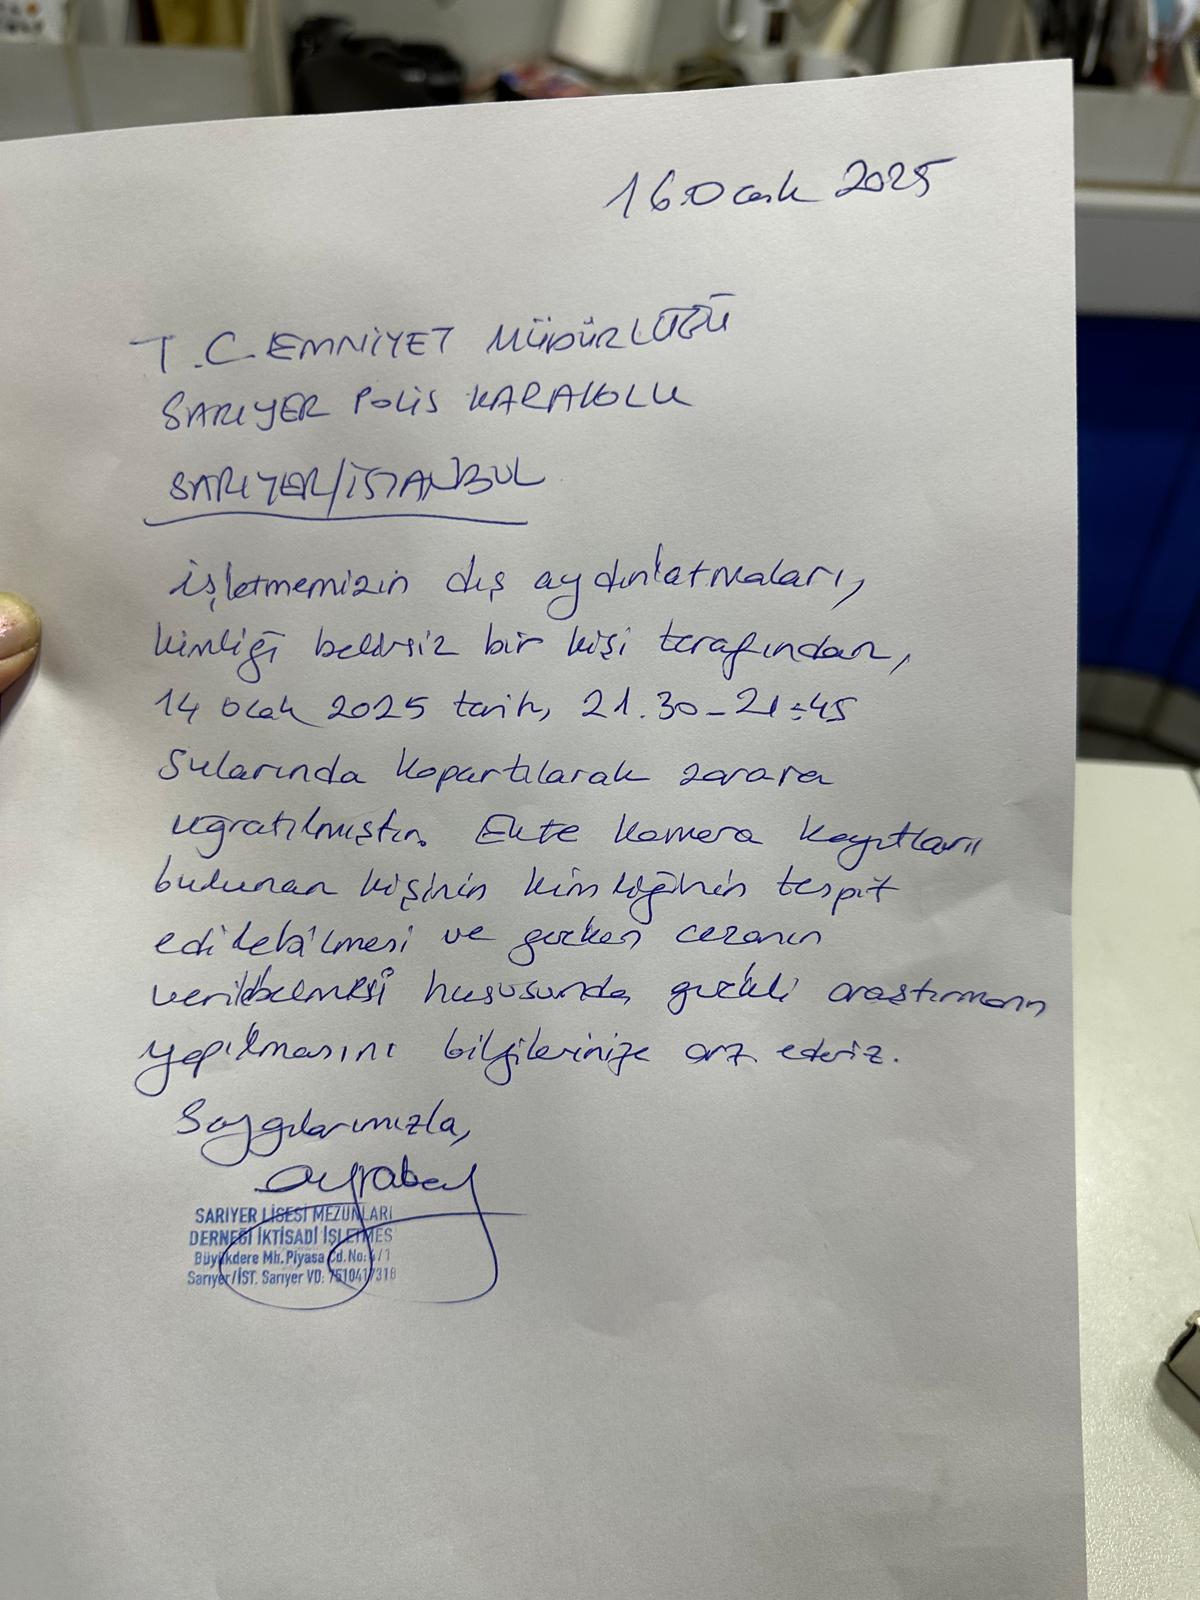 16 Ocak 2025
T.C EMNİYET MÜDÜRLÜĞÜ
SARIYER POLİS KARAKOLU
SARIYER/İSTANBUL
işletmemizin dış aydınlatmaları,
kimliği belirsiz bir kişi tarafından,
14 Ocak 2025 tarih, 21.30-21:45
Sularında kopartılarak zarara
uğratılmıştır. Ekte kamera kayıtları
bulunan kişinin kimliğinin tespit
edilebilmesi ve gereken cezanın
verilebilmesi hususunda gerekli araştırmanın
yapılmasını bilgilerinize arz ederiz.
Saygılarımızla,
SARIYER LİSESİ MEZUNLARI
DERNEĞİ İKTİSADİ İŞLETMES
Büyükdere Mh. Piyasa Cd. No: /1
Sarıyer/İST. Sarıyer VD: 7510417318